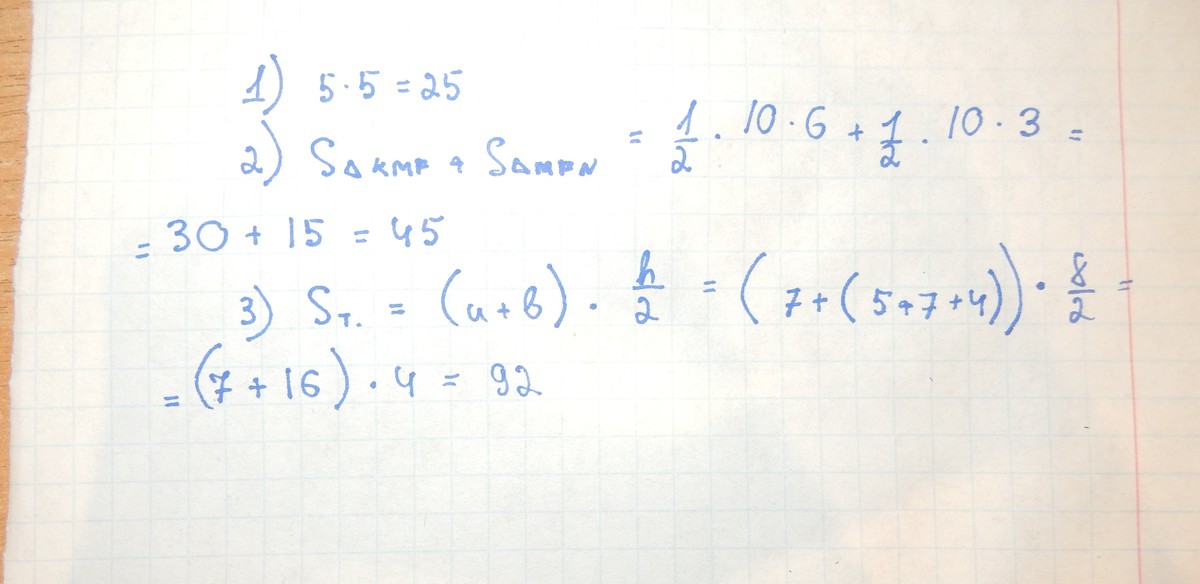 1) 5·5 = 25
2) S△KMF + S△MFN = 1/2 · 10 · 6 + 1/2 · 10 · 3 =
= 30 + 15 = 45
3) Sт. = (a + b) · h/2 = (7 + (5+7+4)) · 8/2 =
= (7 + 16) · 4 = 92